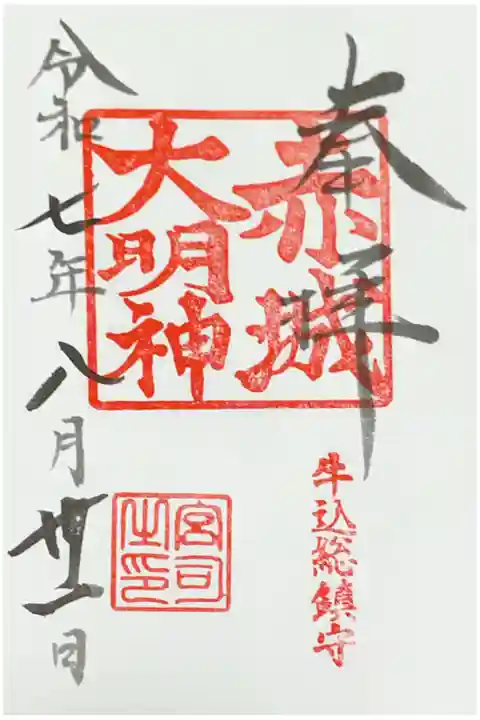 奉拝
赤城
大明神
牛込総鎮守
宮司
之印
令和七年八月卅一日